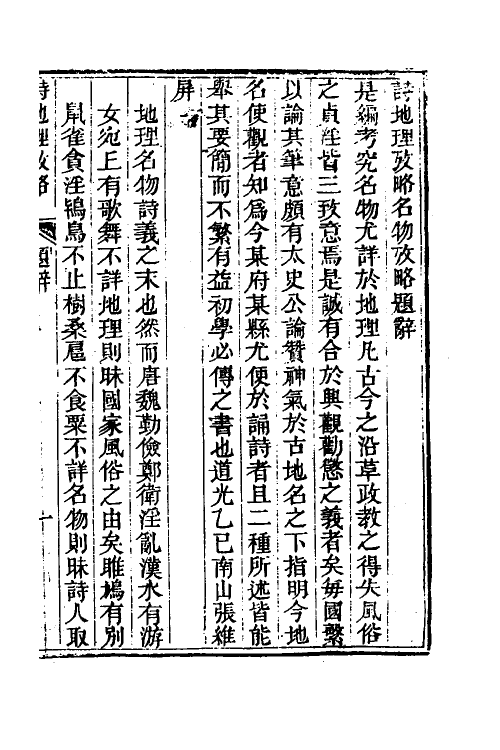 詩地理攷略名物攷略題辭
是編考究名物尤詳於地理凡古今之沿革政教之得失風俗
之貞淫皆三致意焉是誠有合於興觀勸懲之義者矣每國繫
以論其筆意頗有太史公論贊神氣於古地名之下指明今地
名使觀者知爲今某府某縣尤便於誦詩者且二種所述皆能
舉其要簡而不繁有益初學必傳之書也道光乙巳南山張維
屏
地理名物詩義之末也然而唐魏勤儉鄭衛淫亂漢水有游
女宛丘有歌舞不詳地理則昧國家風俗之由矣雎鳩有別
鼠雀貪淫鴇鳥不止樹桑扈不食粟不詳名物則昧詩人取
詩地理攷略 題辭